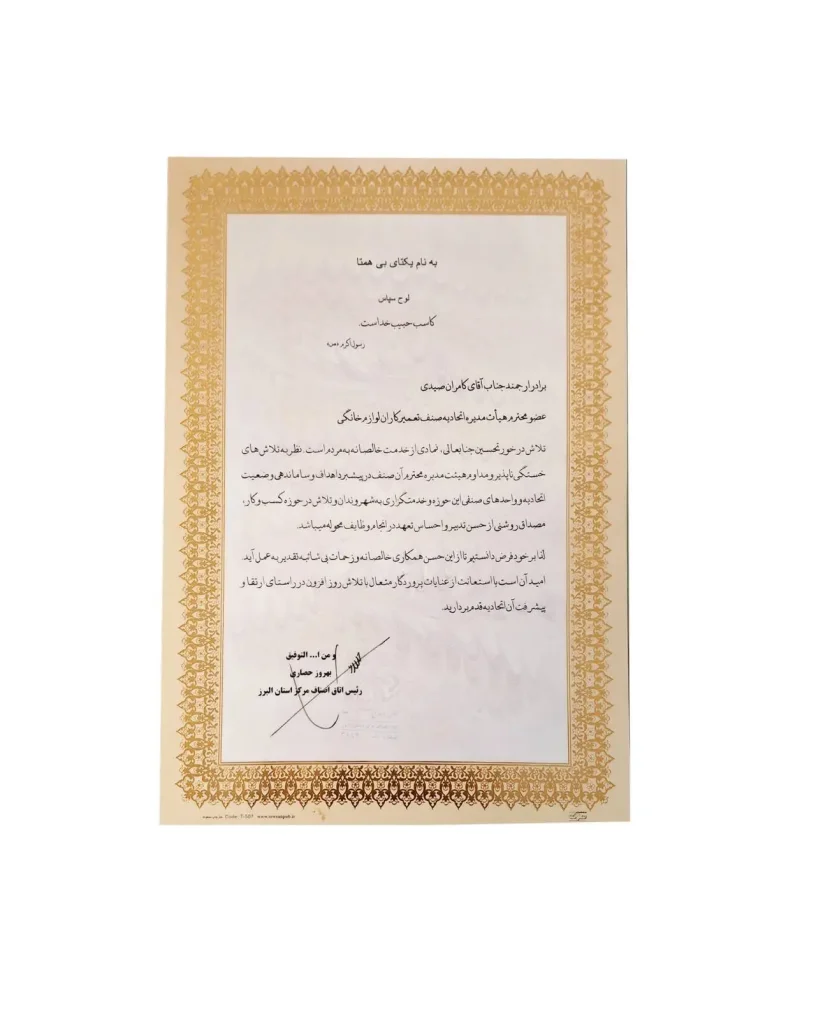 به نام یکتای بی همتا
لوح سپاس
کاسب حبیب خداست.
رسول اکرم
برادر ارجمند جناب آقای کامران صیدی
عضو محترم هیأت مدیره اتحادیه صنف تعمیرکاران لوازم خانگی
تلاش در خور تحسین جنابعالی، نمادی از خدمت خالصانه به مردم است. نظر به تلاش های
خستگی ناپذیر و مداوم هیئت مدیره محترم آن صنف در پیشبرد اهداف و ساماندهی وضعیت
اتحادیه و واحدهای صنفی این حوزه و خدمتگزاری به شهروندان و تلاش در حوزه کسب و کار،
مصداق روشنی از حسن تدبیر و احساس تعهد در انجام وظایف محوله میباشد.
لذا بر خود فرض دانستیم تا از این حسن همکاری خالصانه و زحمات بی شائبه تقدیر به عمل آید.
امید آن است با استعانت از عنایات پروردگار متعال با تلاش روز افزون در راستای ارتقا و
پیشرفت آن اتحادیه قدم بردارید.
و من ا... التوفیق
بهروز حصاری
رئیس اتاق اصناف مرکز استان البرز